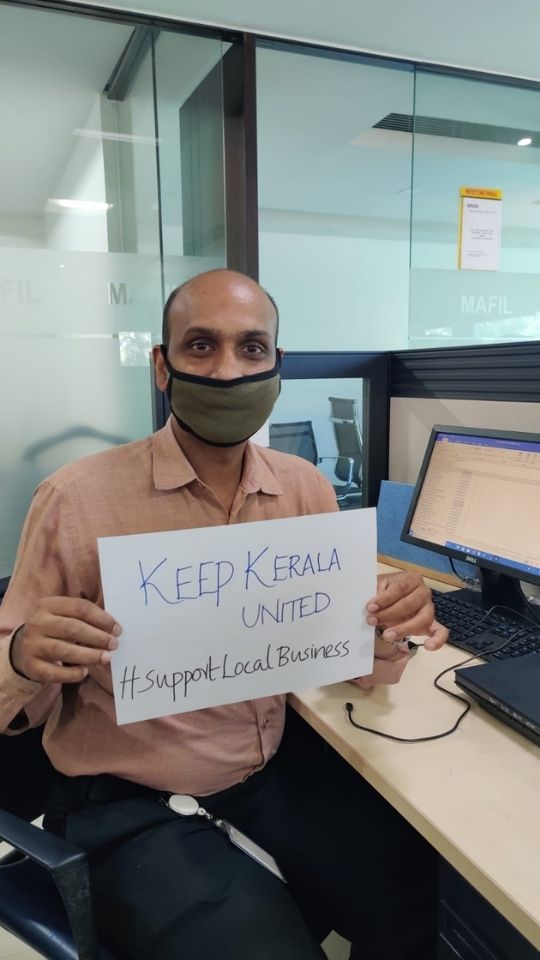 MEETING HALL
FIL
MA
MAFIL
KEEP KERALA
UNITED
#SupportLocalBusiness
DELL